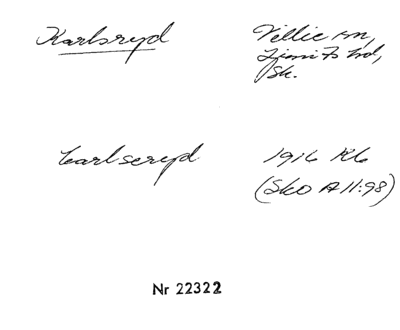 Karlsryd
Vellie sn,
Frosta hd,
Sk.
Carlseryd
1916 RG
(Sko A II:98)
Nr 22322